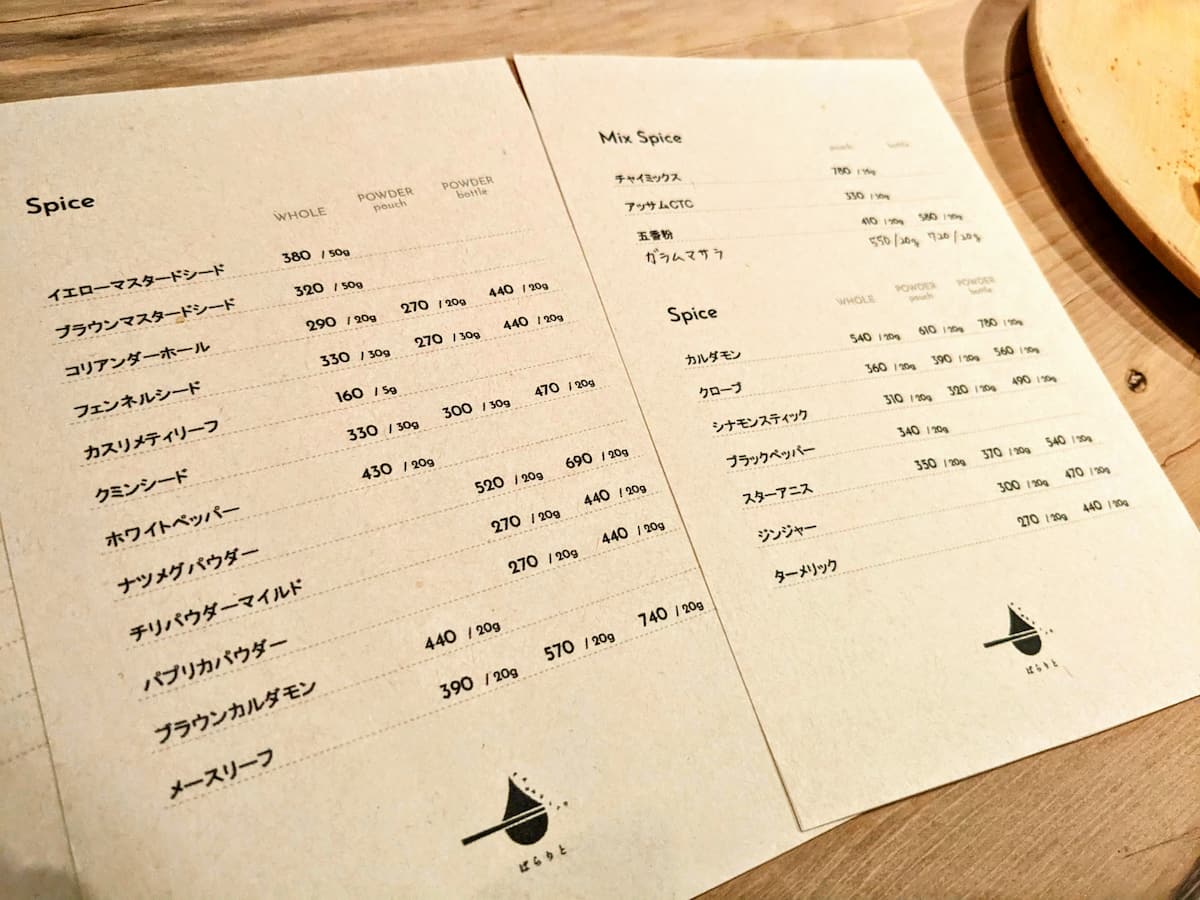 Spice
WHOLE POWDER pouch POWDER bottle
イエローマスタードシード 380 / 50g
ブラウンマスタードシード 320 / 50g
コリアンダーホール 290 / 20g 270 / 20g 440 / 20g
フェンネルシード 330 / 30g 270 / 30g 440 / 20g
カスリメティリーフ 160 / 5g
クミンシード 330 / 30g 300 / 30g 470 / 20g
ホワイトペッパー 430 / 20g
ナツメグパウダー 520 / 20g 690 / 20g
チリパウダーマイルド 270 / 20g 440 / 20g
パプリカパウダー 270 / 20g 440 / 20g
ブラウンカルダモン 440 / 20g
メースリーフ 390 / 20g 570 / 20g 740 / 20g
ぱらりと
Mix Spice
pouch bottle
チャイミックス 780
アッサムCTC 330 / 30g
五香粉 410 / 20g 580 / 20g
ガラムマサラ 550/20g 720/20g
Spice
WHOLE POWDER pouch POWDER bottle
カルダモン 540 / 20g 610 / 20g 780 / 20g
クローブ 360 / 20g 390 / 20g 560 / 20g
シナモンスティック 310 / 20g 320 / 20g 490 / 20g
ブラックペッパー 340 / 20g
スターアニス 350 / 20g 370 / 20g 540 / 20g
ジンジャー 300 / 20g 470 / 20g
ターメリック 270 / 20g 440 / 20g
ぱらりと